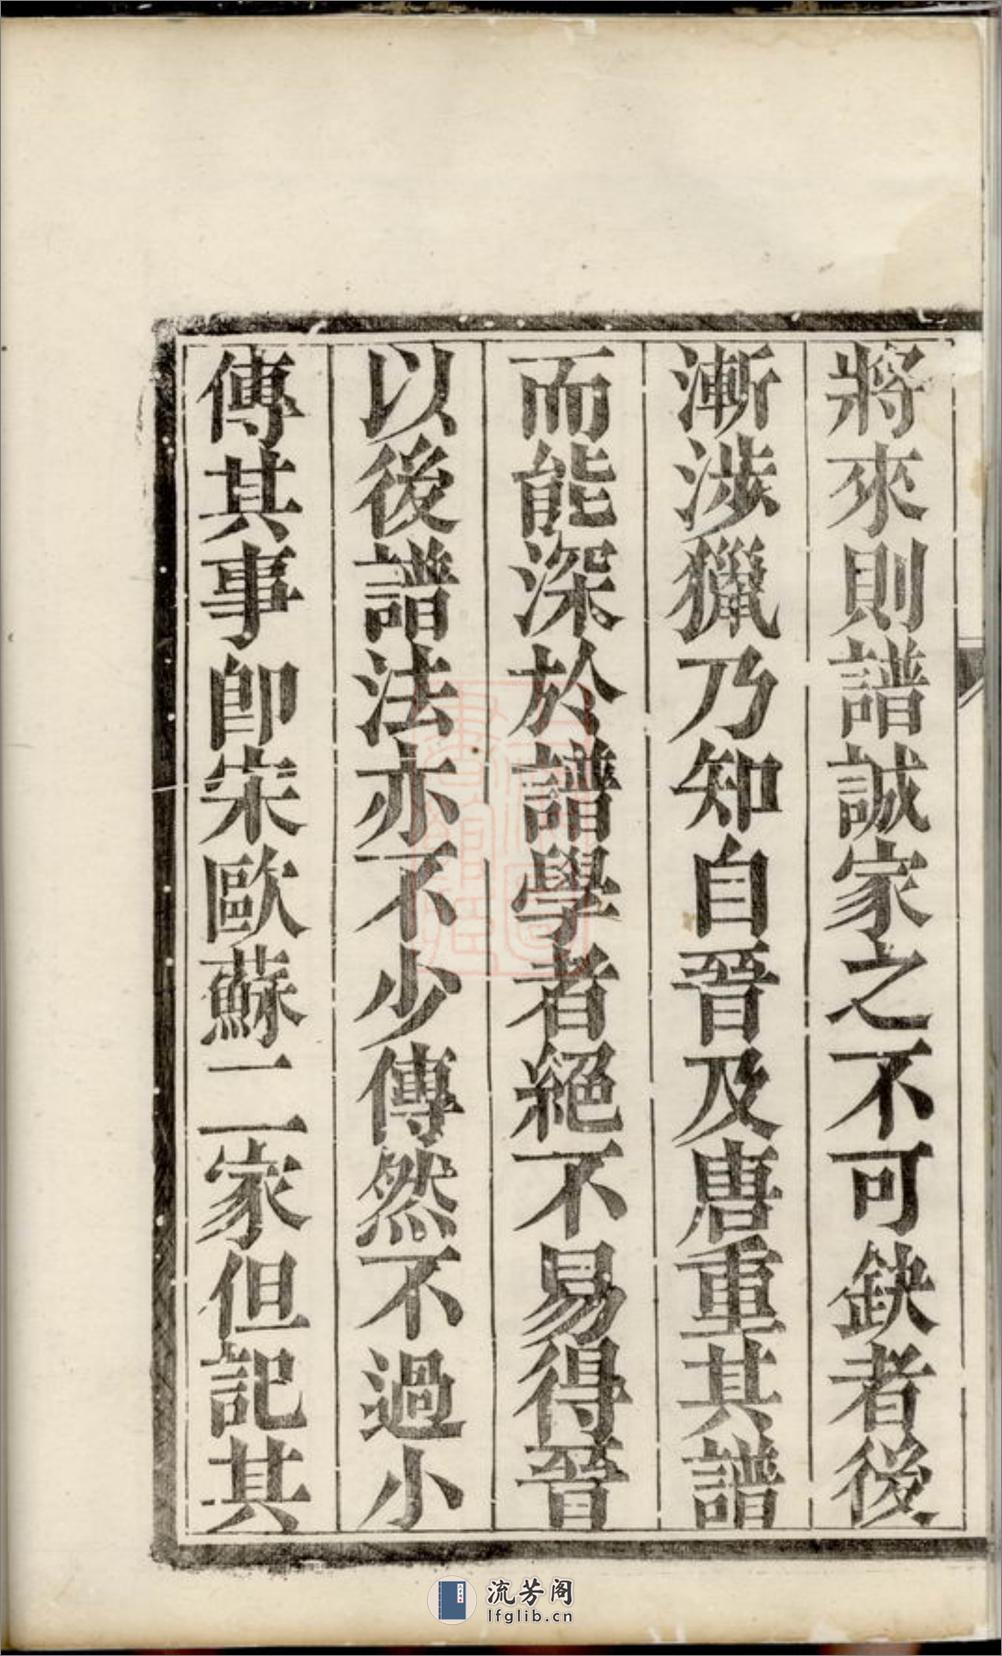 將來則譜誠家之不可缺者後
漸涉獵乃知自晉及唐重其譜
而能深於譜學者絕不易得晉
以後譜法亦不少傳然不過小
傳其事即宋歐蘇二家但記其
流芳阁
lfglib.cn